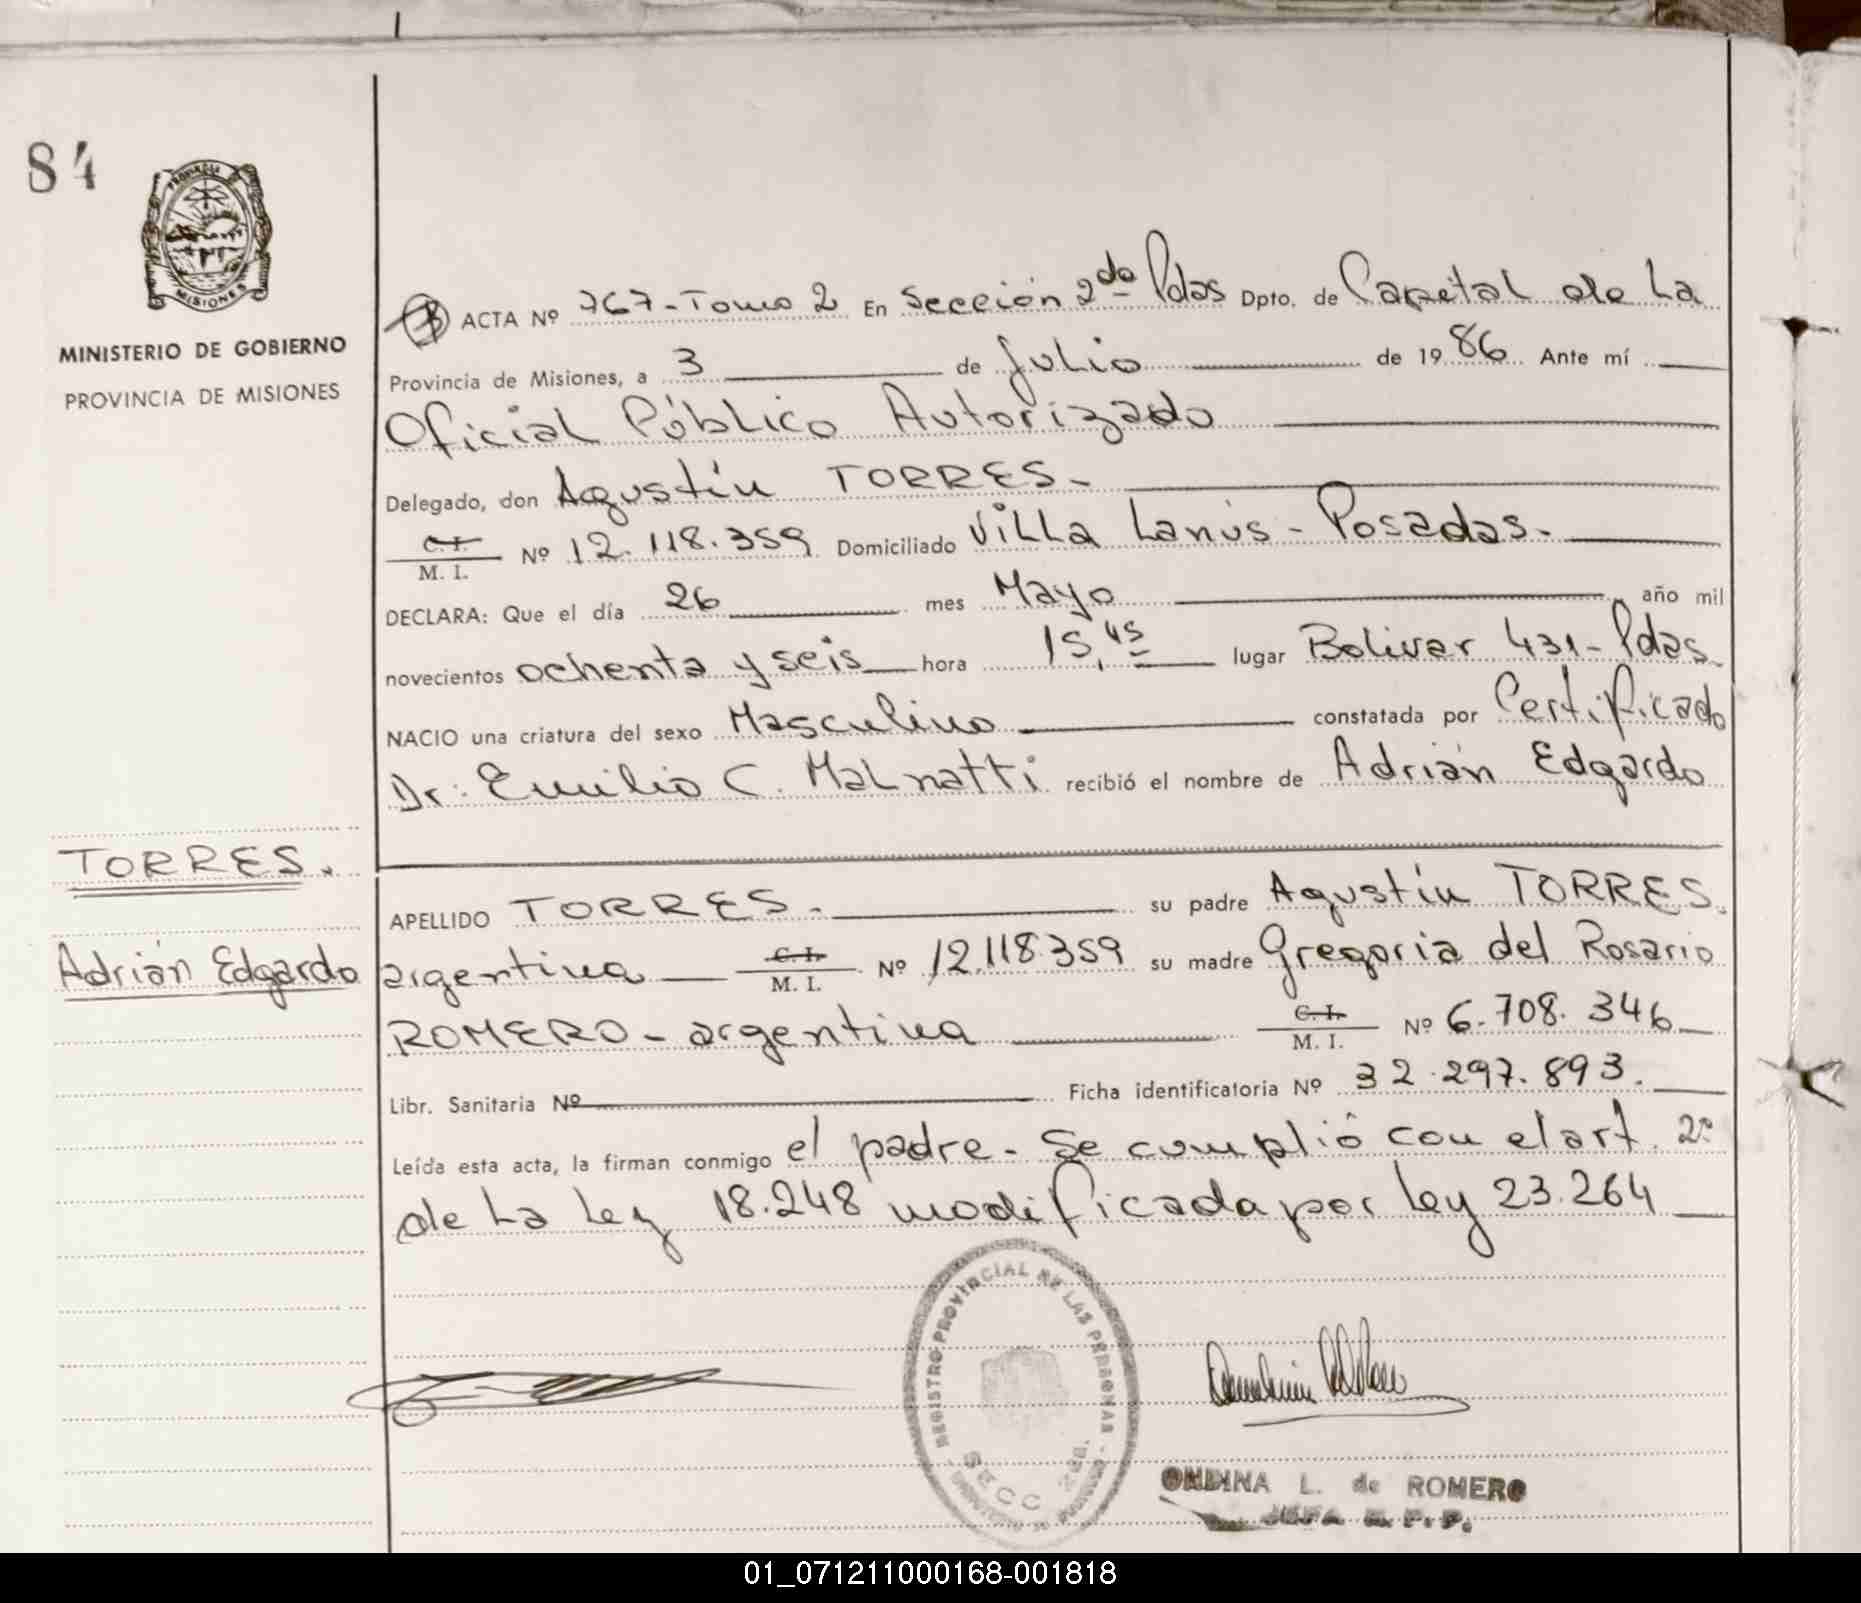 84
PROVINCIA
MISIONES
MINISTERIO DE GOBIERNO
PROVINCIA DE MISIONES
ACTA Nº 767-Tomo 2 En Sección 2da Pdas Dpto. de Capital de La
Provincia de Misiones, a 3 de Julio de 1986 Ante mí
Oficial Público Autorizado
Delegado, don Agustín TORRES.-
C.I.
M. I. Nº 12.118.359 Domiciliado Villa Lanús - Posadas.-
DECLARA: Que el día 26 mes Mayo año mil
novecientos ochenta y seis hora 15,45 lugar Bolivar 431-Pdas.
NACIO una criatura del sexo Masculino constatada por Certificado
Dr: Emilio C. Malnatti recibió el nombre de Adrián Edgardo
TORRES.
Adrián Edgardo
APELLIDO TORRES.- su padre Agustín TORRES.
argentina C.I. M. I. Nº 12.118.359 su madre Gregoria del Rosario
ROMERO - argentina C.I. M. I. Nº 6.708.346
Libr. Sanitaria Nº Ficha identificatoria Nº 32.297.893.
Leída esta acta, la firman conmigo el padre.- Se cumplió con el art. 2º
de La Ley 18.248 modificada por ley 23.264
REGISTRO PROVINCIAL DE LAS PERSONAS
SECC 2da.
ONDINA L. de ROMERO
JEFA
01_071211000168-001818